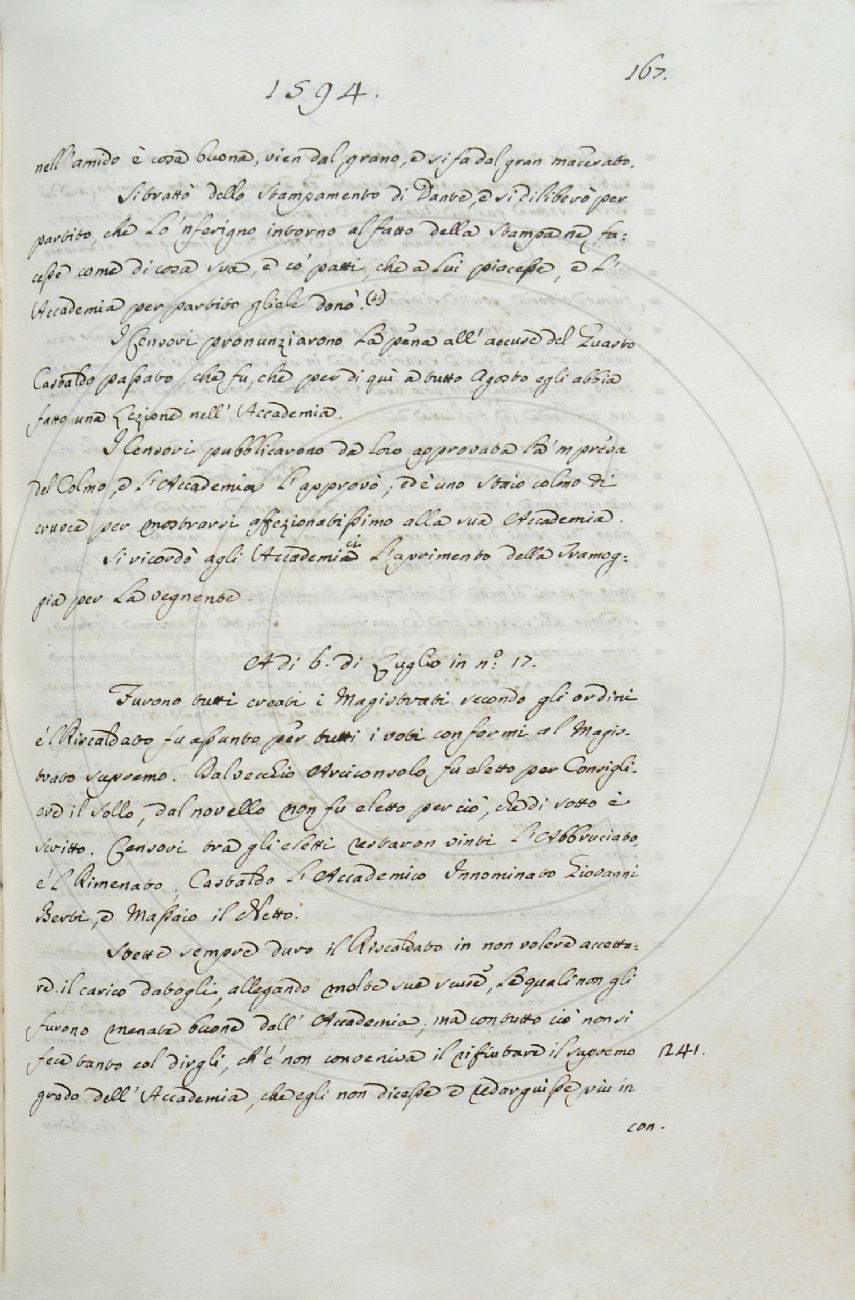 1594.
167.
nell'amido è cosa buona, vien dal grano, e si fa dal gran macerato.
Si trattò dello stampamento di Dante, e si diliberò per
partito, che lo 'nferigno intorno al fatto della stampa ne fa:
cesse come di cosa sua, e co' patti, che a lui piacesse, e l'
Accademia per partito gliele donò.
I Censori pronunziarono la pena all'accuse del Quarto
Castaldo passato, che fu, che per di quì a tutto Agosto egli abbia
fatto una Lezione nell'Accademia.
I Censori pubblicarono da loro approvata la 'mpresa
del Colmo, e l'Accademia l'approvò, ed è uno staio colmo di
crusca per mostrarsi affezionatissimo alla sua Accademia.
Si ricordò agli Accademici l'aprimento della Tramog:
gia per la vegnente.
A dì 6. di Luglio in n.° 17.
Furono tutti creati i Magistrati secondo gli ordini
e 'l Riscaldato fu assunto per tutti i voti conformi al Magis-
trato supremo. Dal vecchio Arciconsolo fu eletto per Consigli-
ere il Sollo, dal novello non fu eletto per ciò, che di sotto è
scritto. Censori tra gli eletti restaron vinti l'Abbruciato,
e 'l Rimenato, Castaldo l'Accademico Innominato Giovanni
Berti, e Massaio il Netto.
Stette sempre duro il Riscaldato in non volere accetta:
re il carico datogli, allegando molte sue scuse, le quali non gli
furono menate buone dall'Accademia, ma con tutto ciò non si
fece tanto col dirgli, ch'e' non conveniva il rifiutare il supremo
1241.
grado dell'Accademia, che egli non dicesse e redarguisse più in
con.